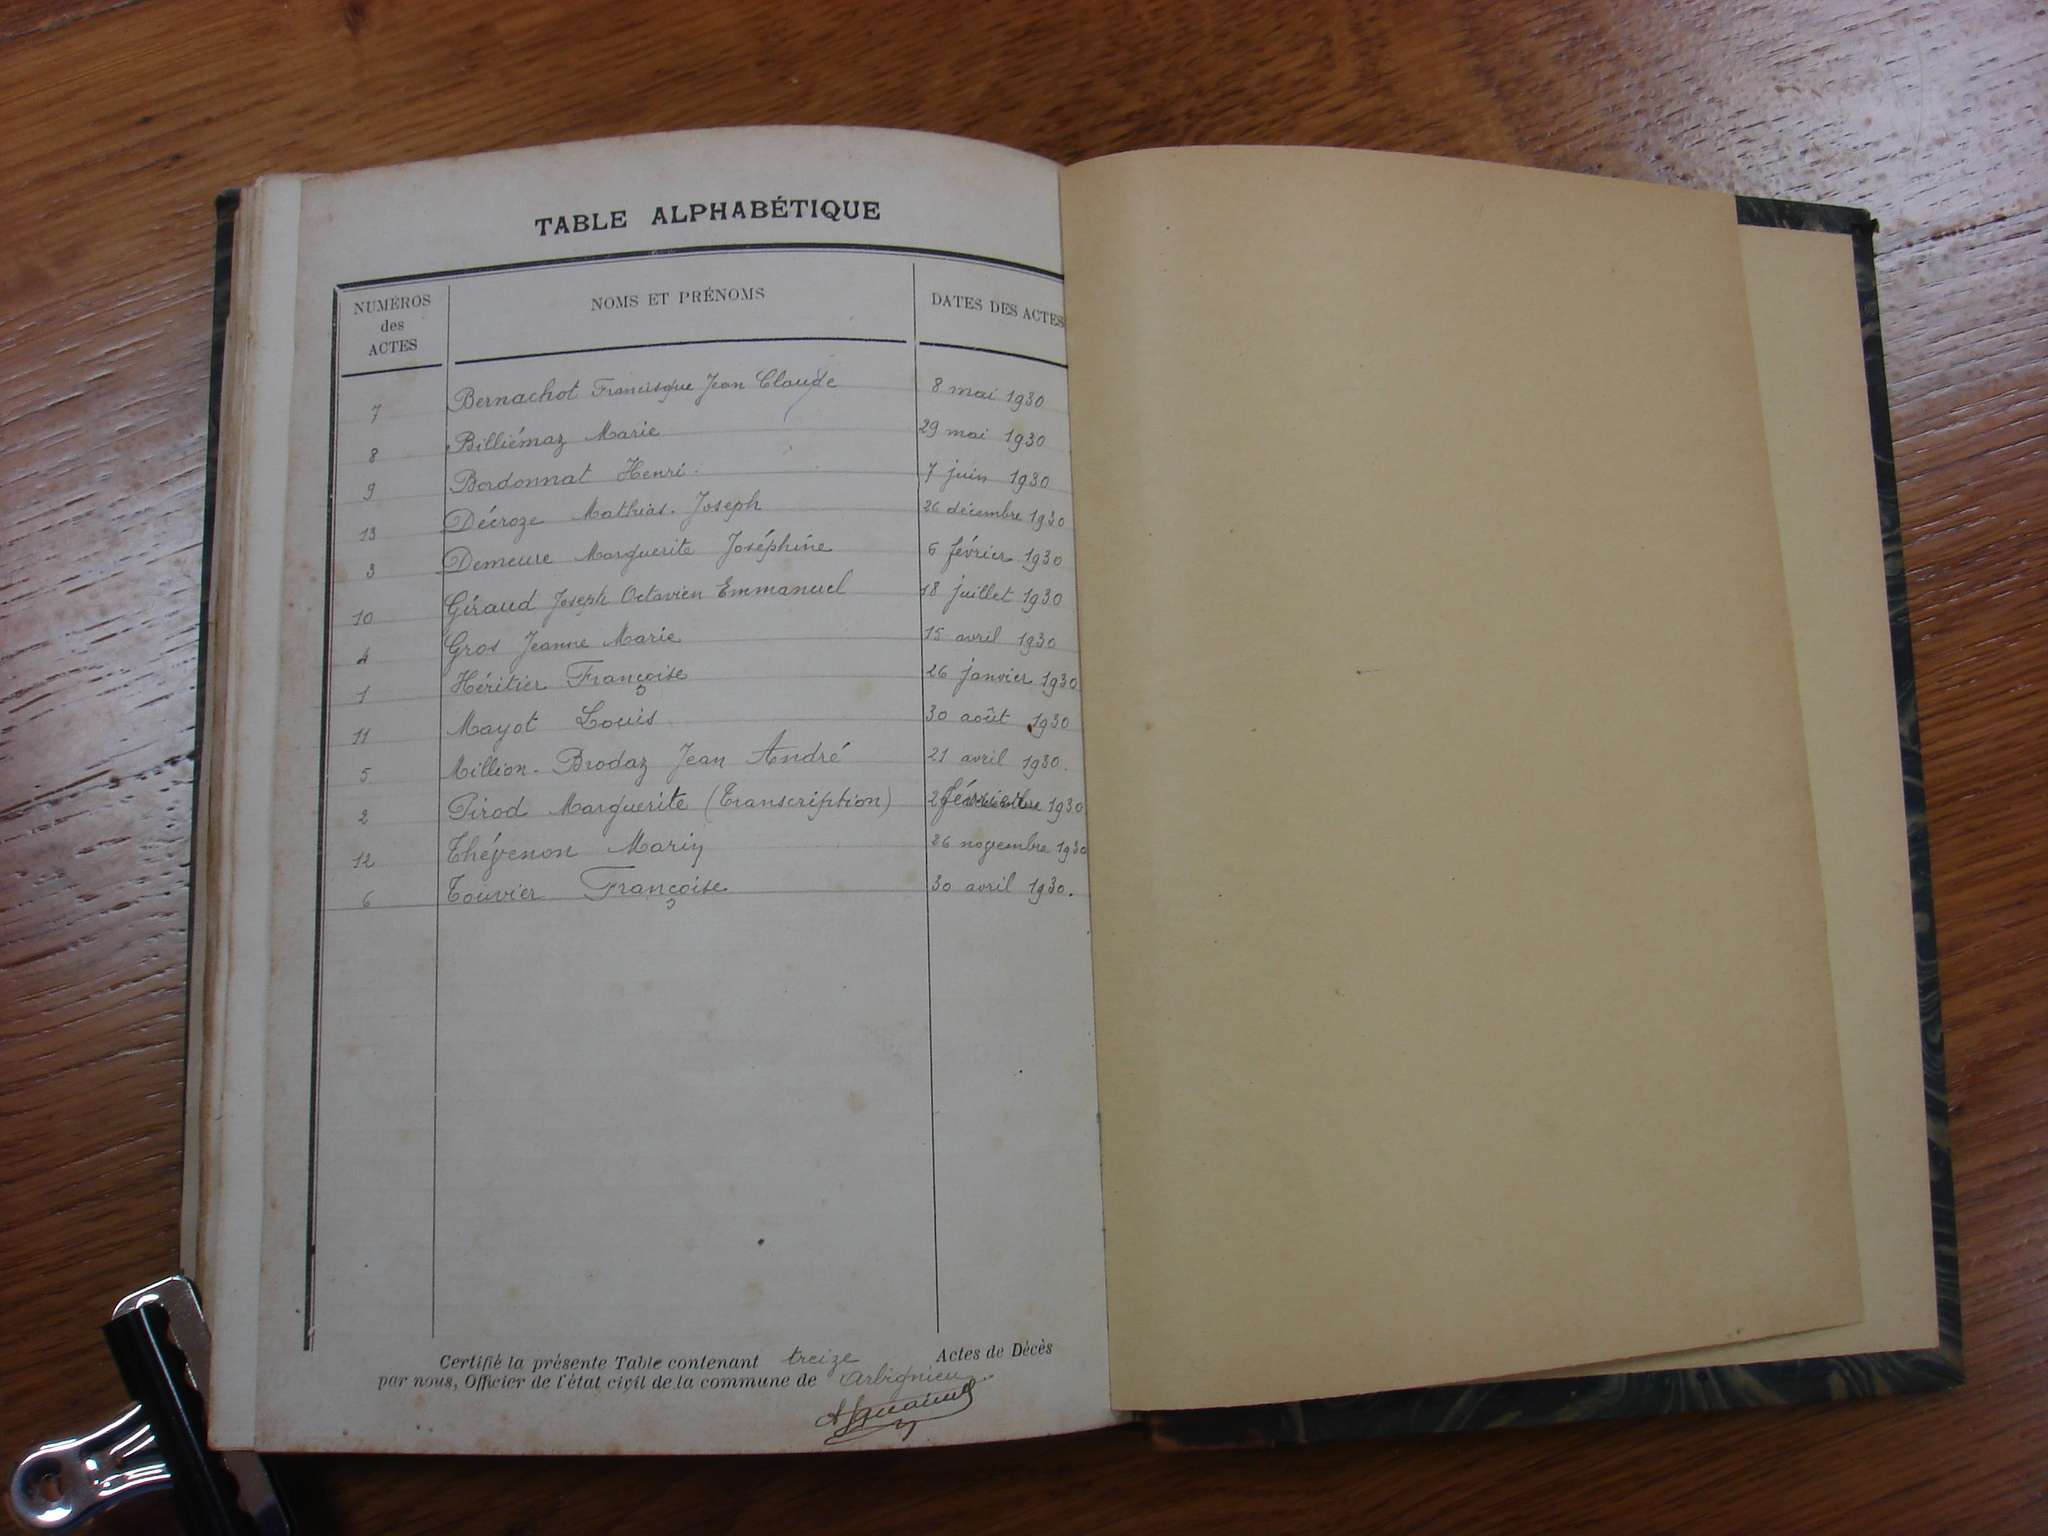 TABLE ALPHABÉTIQUE
NUMÉROS des ACTES NOMS ET PRÉNOMS DATES DES ACTES
7 Bernachot Francisque Jean Claude 8 mai 1930
8 Billiémaz Marie 29 mai 1930
9 Bordonnat Henri. 7 juin 1930
13 Décroze Mathias. Joseph 26 décembre 1930
3 Demeure Marguerite Joséphine 6 février 1930
10 Giraud Joseph Octavien Emmanuel 18 juillet 1930
4 Gros Jeanne Marie 15 avril 1930
1 Héritier Françoise 26 janvier 1930.
11 Mayot Louis 30 août 1930
5 Million-Brodaz Jean André 21 avril 1930.
2 Pirod Marguerite (Transcription) 2 février 1930.
12 Thévenon Marin 26 novembre 1930
6 Touvier Françoise 30 avril 1930.
Certifié la présente Table contenant treize Actes de Décès
par nous, Officier de l'état civil de la commune de Arbignieu